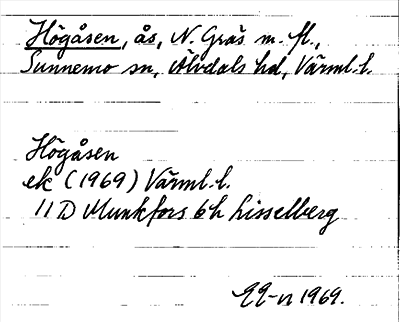 Högåsen, ås, N. Grås m. fl.,
Sunnemo sn, Älvdals hd, Värml. l.
Högåsen
ek (1969) Värml. l.
11 D Munkfors 6h Lisselberg
1969.